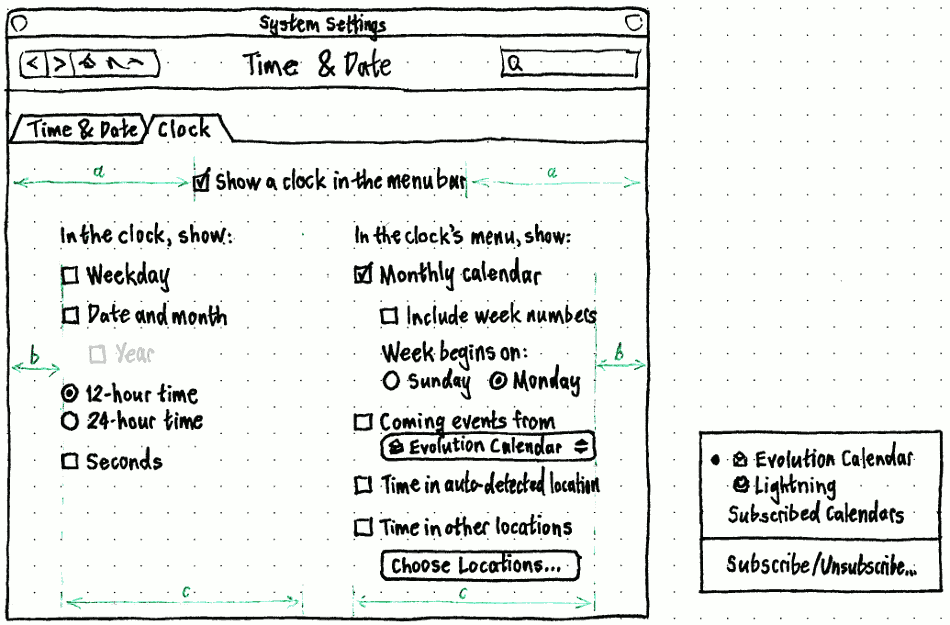 System Settings
Time & Date
Time & Date
Clock
a
Show a clock in the menu bar
a
In the clock, show:
Weekday
Date and month
Year
b
12-hour time
24-hour time
Seconds
c
In the clock's menu, show:
Monthly calendar
Include week numbers
Week begins on:
Sunday Monday
b
Coming events from
Evolution Calendar
Time in auto-detected location
Time in other locations
Choose Locations...
c
Evolution Calendar
Lightning
Subscribed Calendars
Subscribe/Unsubscribe...